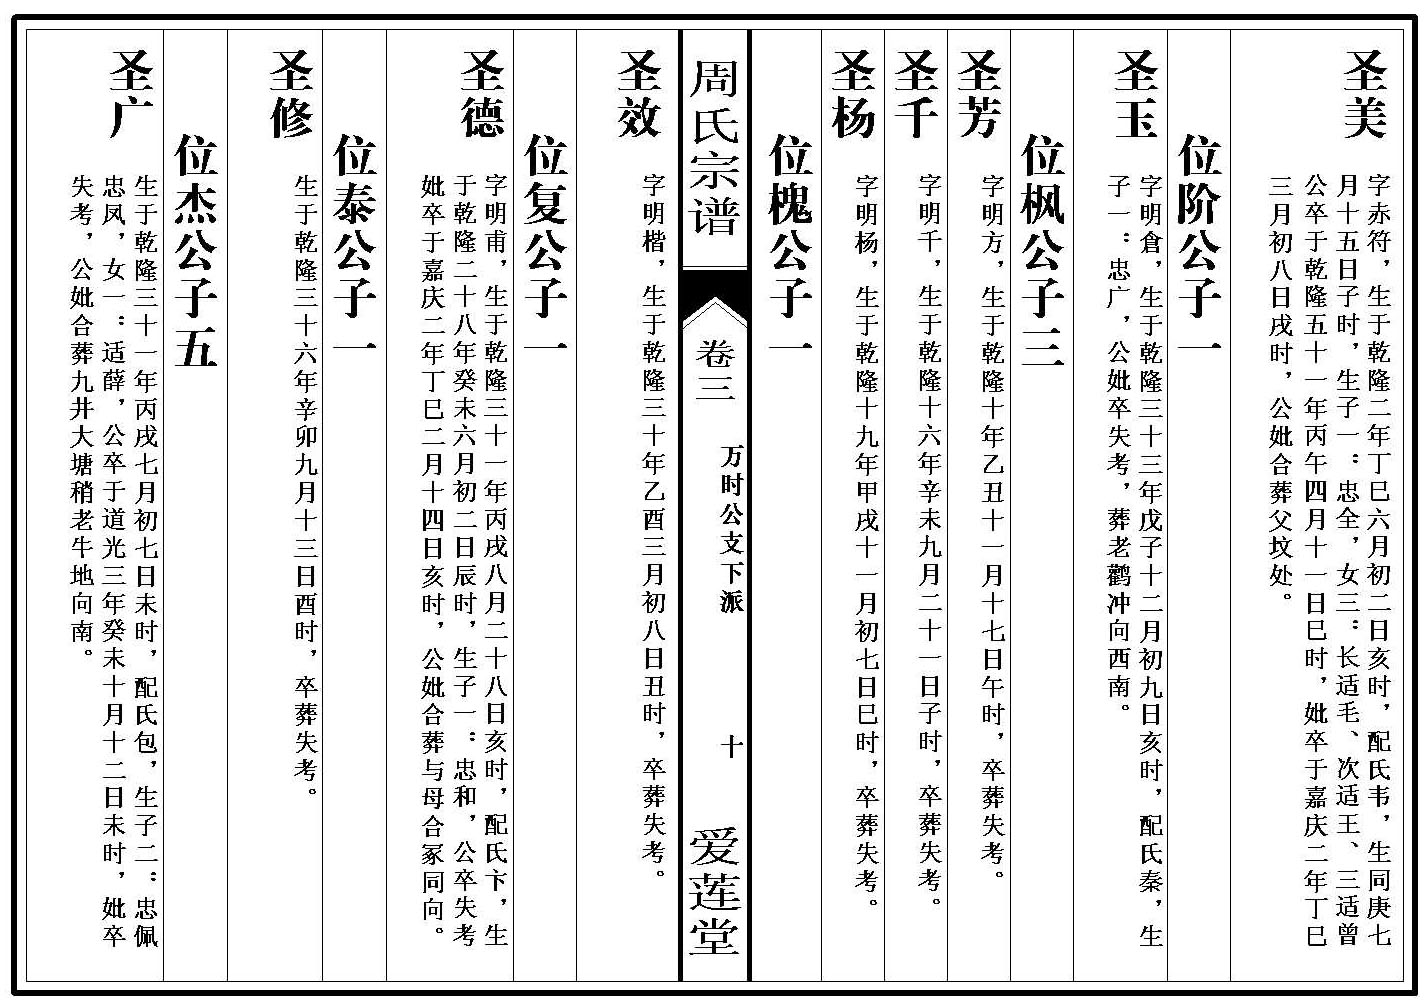 圣美
字赤符，生于乾隆二年丁巳六月初二日亥时，配氏韦，生同庚七
月十五日子时，生子一：忠全，女三：长适毛、次适王、三适曾
公卒于乾隆五十一年丙午四月十一日巳时，妣卒于嘉庆二年丁巳
三月初八日戌时，公妣合葬父坟处。
位阶公子一
圣玉
字明倉，生于乾隆三十三年戊子十二月初九日亥时，配氏秦，生
子一：忠广，公妣卒失考，葬老鹳冲向西南。
位枫公子三
圣芳
字明方，生于乾隆十年乙丑十一月十七日午时，卒葬失考。
圣千
字明千，生于乾隆十六年辛未九月二十一日子时，卒葬失考。
圣杨
字明杨，生于乾隆十九年甲戌十一月初七日巳时，卒葬失考。
位槐公子一
周氏宗谱
卷三
万时公支下派
十
爱莲堂
圣效
字明楷，生于乾隆三十年乙酉三月初八日丑时，卒葬失考。
位复公子一
圣德
字明甫，生于乾隆三十一年丙戌八月二十八日亥时，配氏卞，生
于乾隆二十八年癸未六月初二日辰时，生子一：忠和，公卒失考
妣卒于嘉庆二年丁巳二月十四日亥时，公妣合葬与母合冢同向。
位泰公子一
圣修
生于乾隆三十六年辛卯九月十三日酉时，卒葬失考。
位杰公子五
圣广
生于乾隆三十一年丙戌七月初七日未时，配氏包，生子二：忠佩
忠凤，女一：适薛，公卒于道光三年癸未十月十二日未时，妣卒
失考，公妣合葬九井大塘稍老牛地向南。